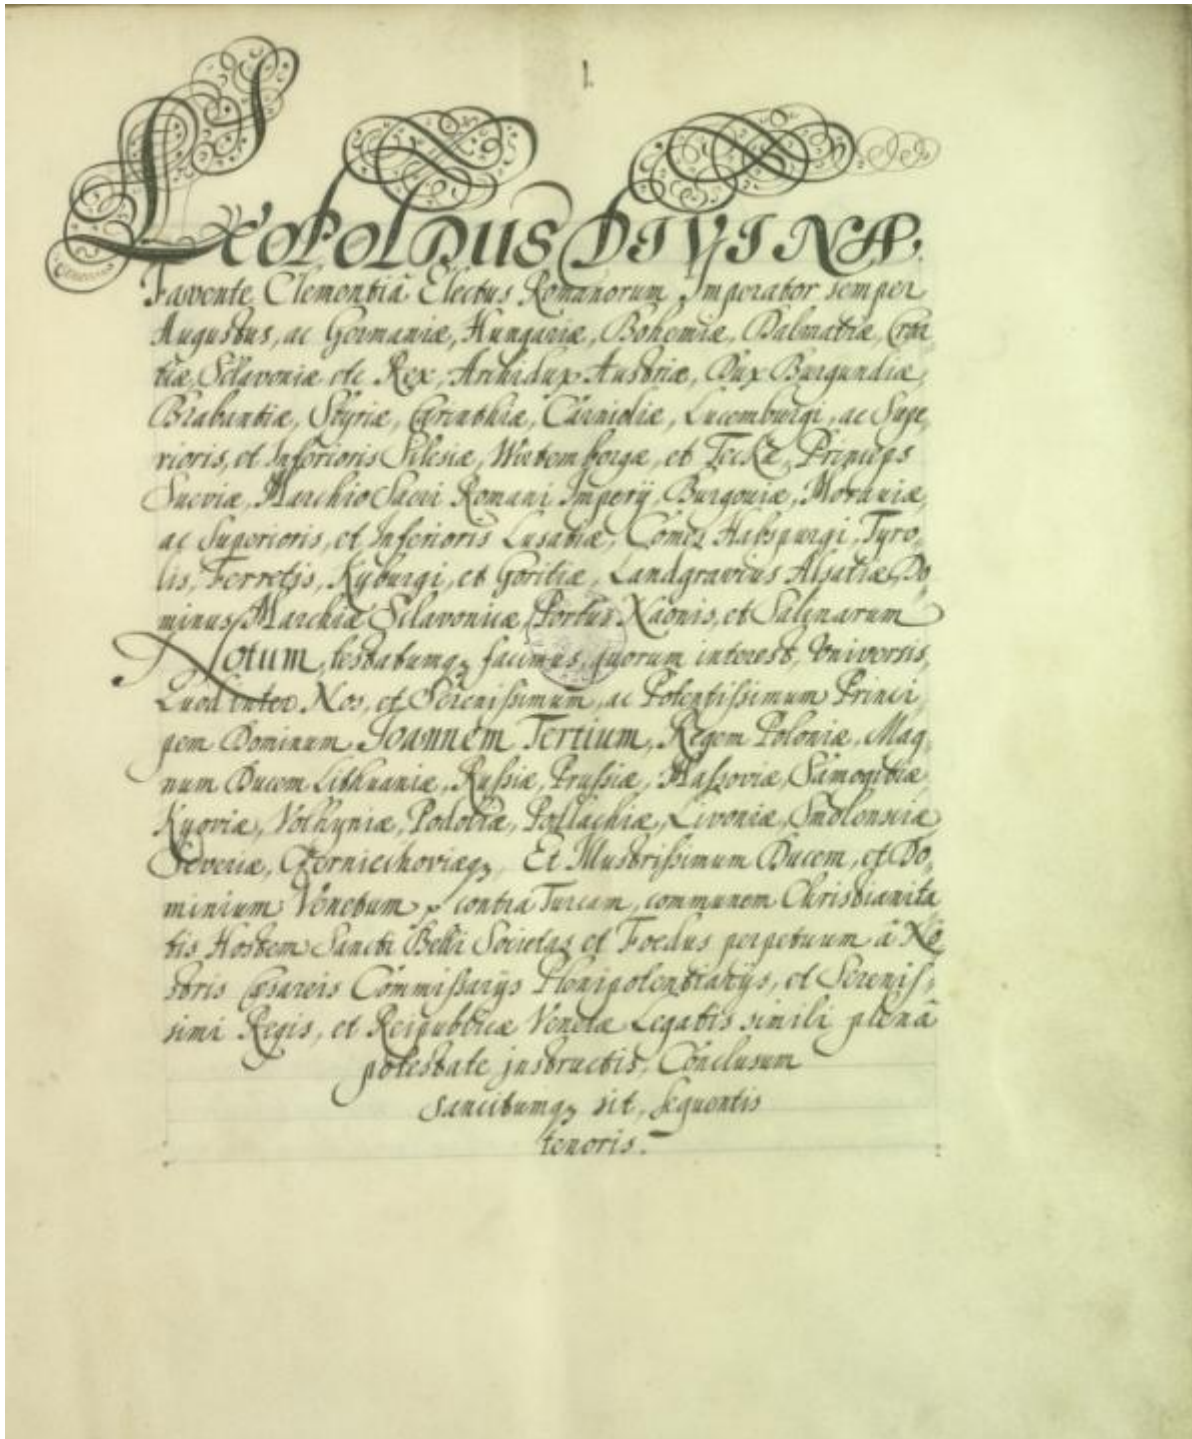 1.
LEOPOLDUS DIVINA
Favente Clementiâ Electus Romanorum Imperator semper
Augustus, ac Germaniæ, Hungariæ, Bohemiæ, Dalmatiæ, Croa
tiæ, Sclavoniæ etc Rex, Archidux Austriæ, Dux Burgundiæ,
Brabantiæ, Styriæ, Carinthiæ, Carnioliæ, Lucemburgi, ac Supe,
rioris, et Inferioris Silesiæ, Wirtembergæ, et Teckæ, Princeps
Sueviæ, Marchio Sacri Romani Imperij, Burgoviæ, Moraviæ,
ac Superioris, et Inferioris Lusatiæ, Comes Habspurgi, Tyro,
lis, Ferretis, Kyburgi, et Goritiæ, Landgravius Alsatiæ, Do
minus Marchiæ Sclavonicæ, Portus Naonis, et Salinarum
Notum, testatumq3 facimus, quorum interest, Universis,
Quod inter Nos, et Serenissimum, ac Potentissimum Princi,
pem Dominum Joannem Tertium, Regem Poloniæ, Mag,
num Ducem Lithuaniæ, Russiæ, Prussiæ, Massoviæ, Samogitiæ,
Kyoviæ, Volhyniæ, Podoliæ, Podlachiæ, Livoniæ, Smolensciæ
Severiæ, Czerniechoviæq3, Et Illustrissimum Ducem, et Do,
minium Venetum contra Turcam, communem Christianita
tis Hostem Sancti Belli Societas et Foedus perpetuum â No
stris Cæsareis Commissarijs Plenipotentiarijs, et Serenis,
simi Regis, et Reipublicæ Venetæ Legatis simili plenâ
potestate instructis, Conclusum
sancitumq3 sit, sequentis
tenoris.